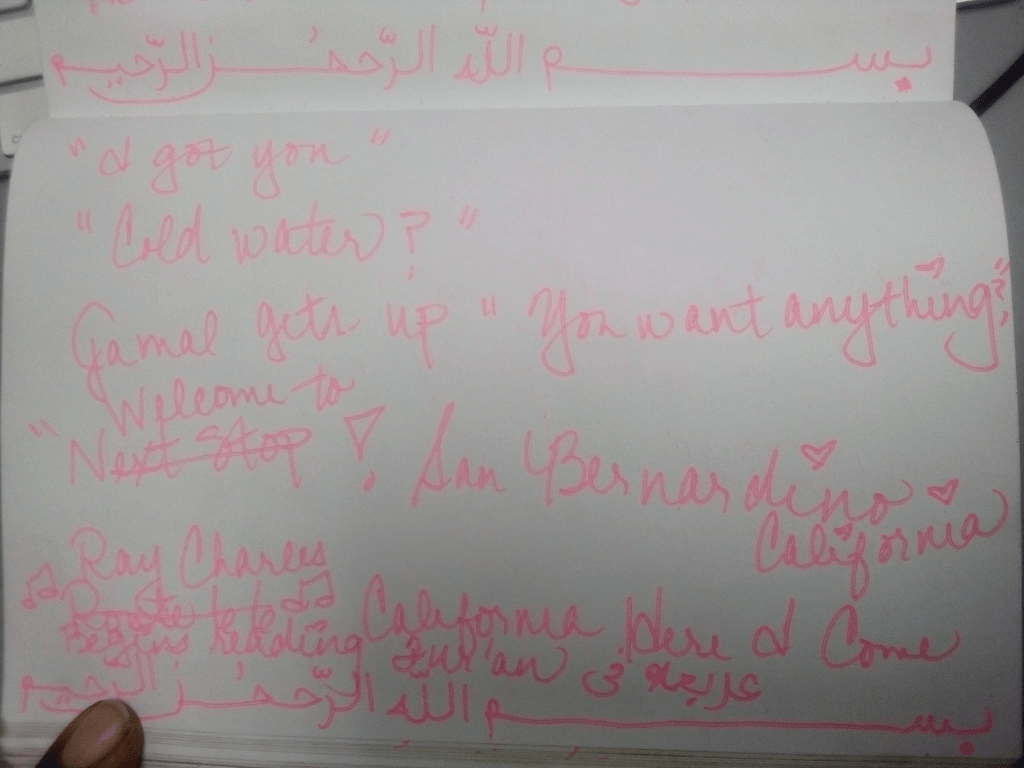 بسم الله الرّحمٰن الرّحيم
"I got you"
"Cold water?"
Gamal gets up "You want anything?"
Welcome to
"Next Stop ! San Bernardino
California
Ray Charles
California Here I Come
Begins reading Qur'an في عربي
بسم الله الرّحمٰن الرّحيم